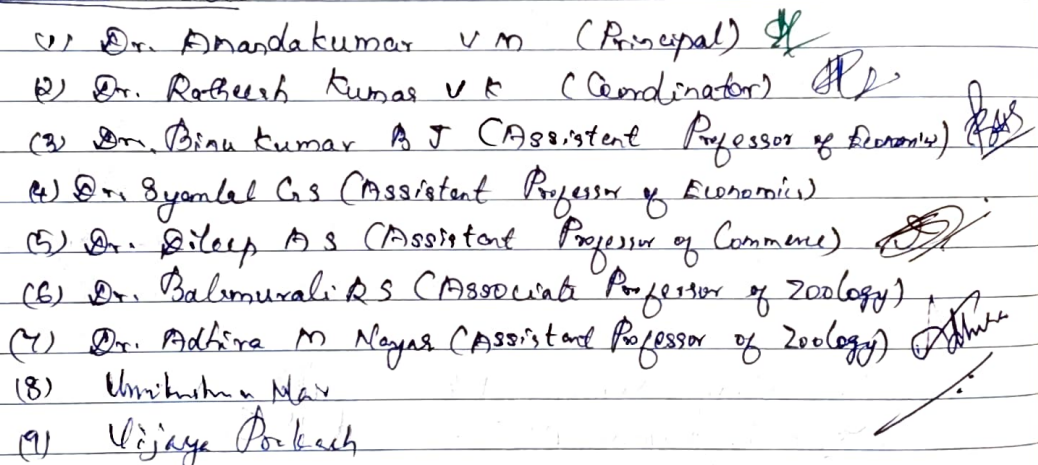 (1) Dr. Anandakumar V M (Principal)
(2) Dr. Ratheesh Kumar V K (Coordinator)
(3) Dr. Binu Kumar B J (Assistent Professor of Economics)
(4) Dr. Syamlal G S (Assistant Professor of Economics)
(5) Dr. Dileep A S (Assistant Professor of Commerce)
(6) Dr. Balamurali R S (Associate Professor of Zoology)
(7) Dr. Adhira M Nayar (Assistant Professor of Zoology)
(8) Nair
(9) Vijaya